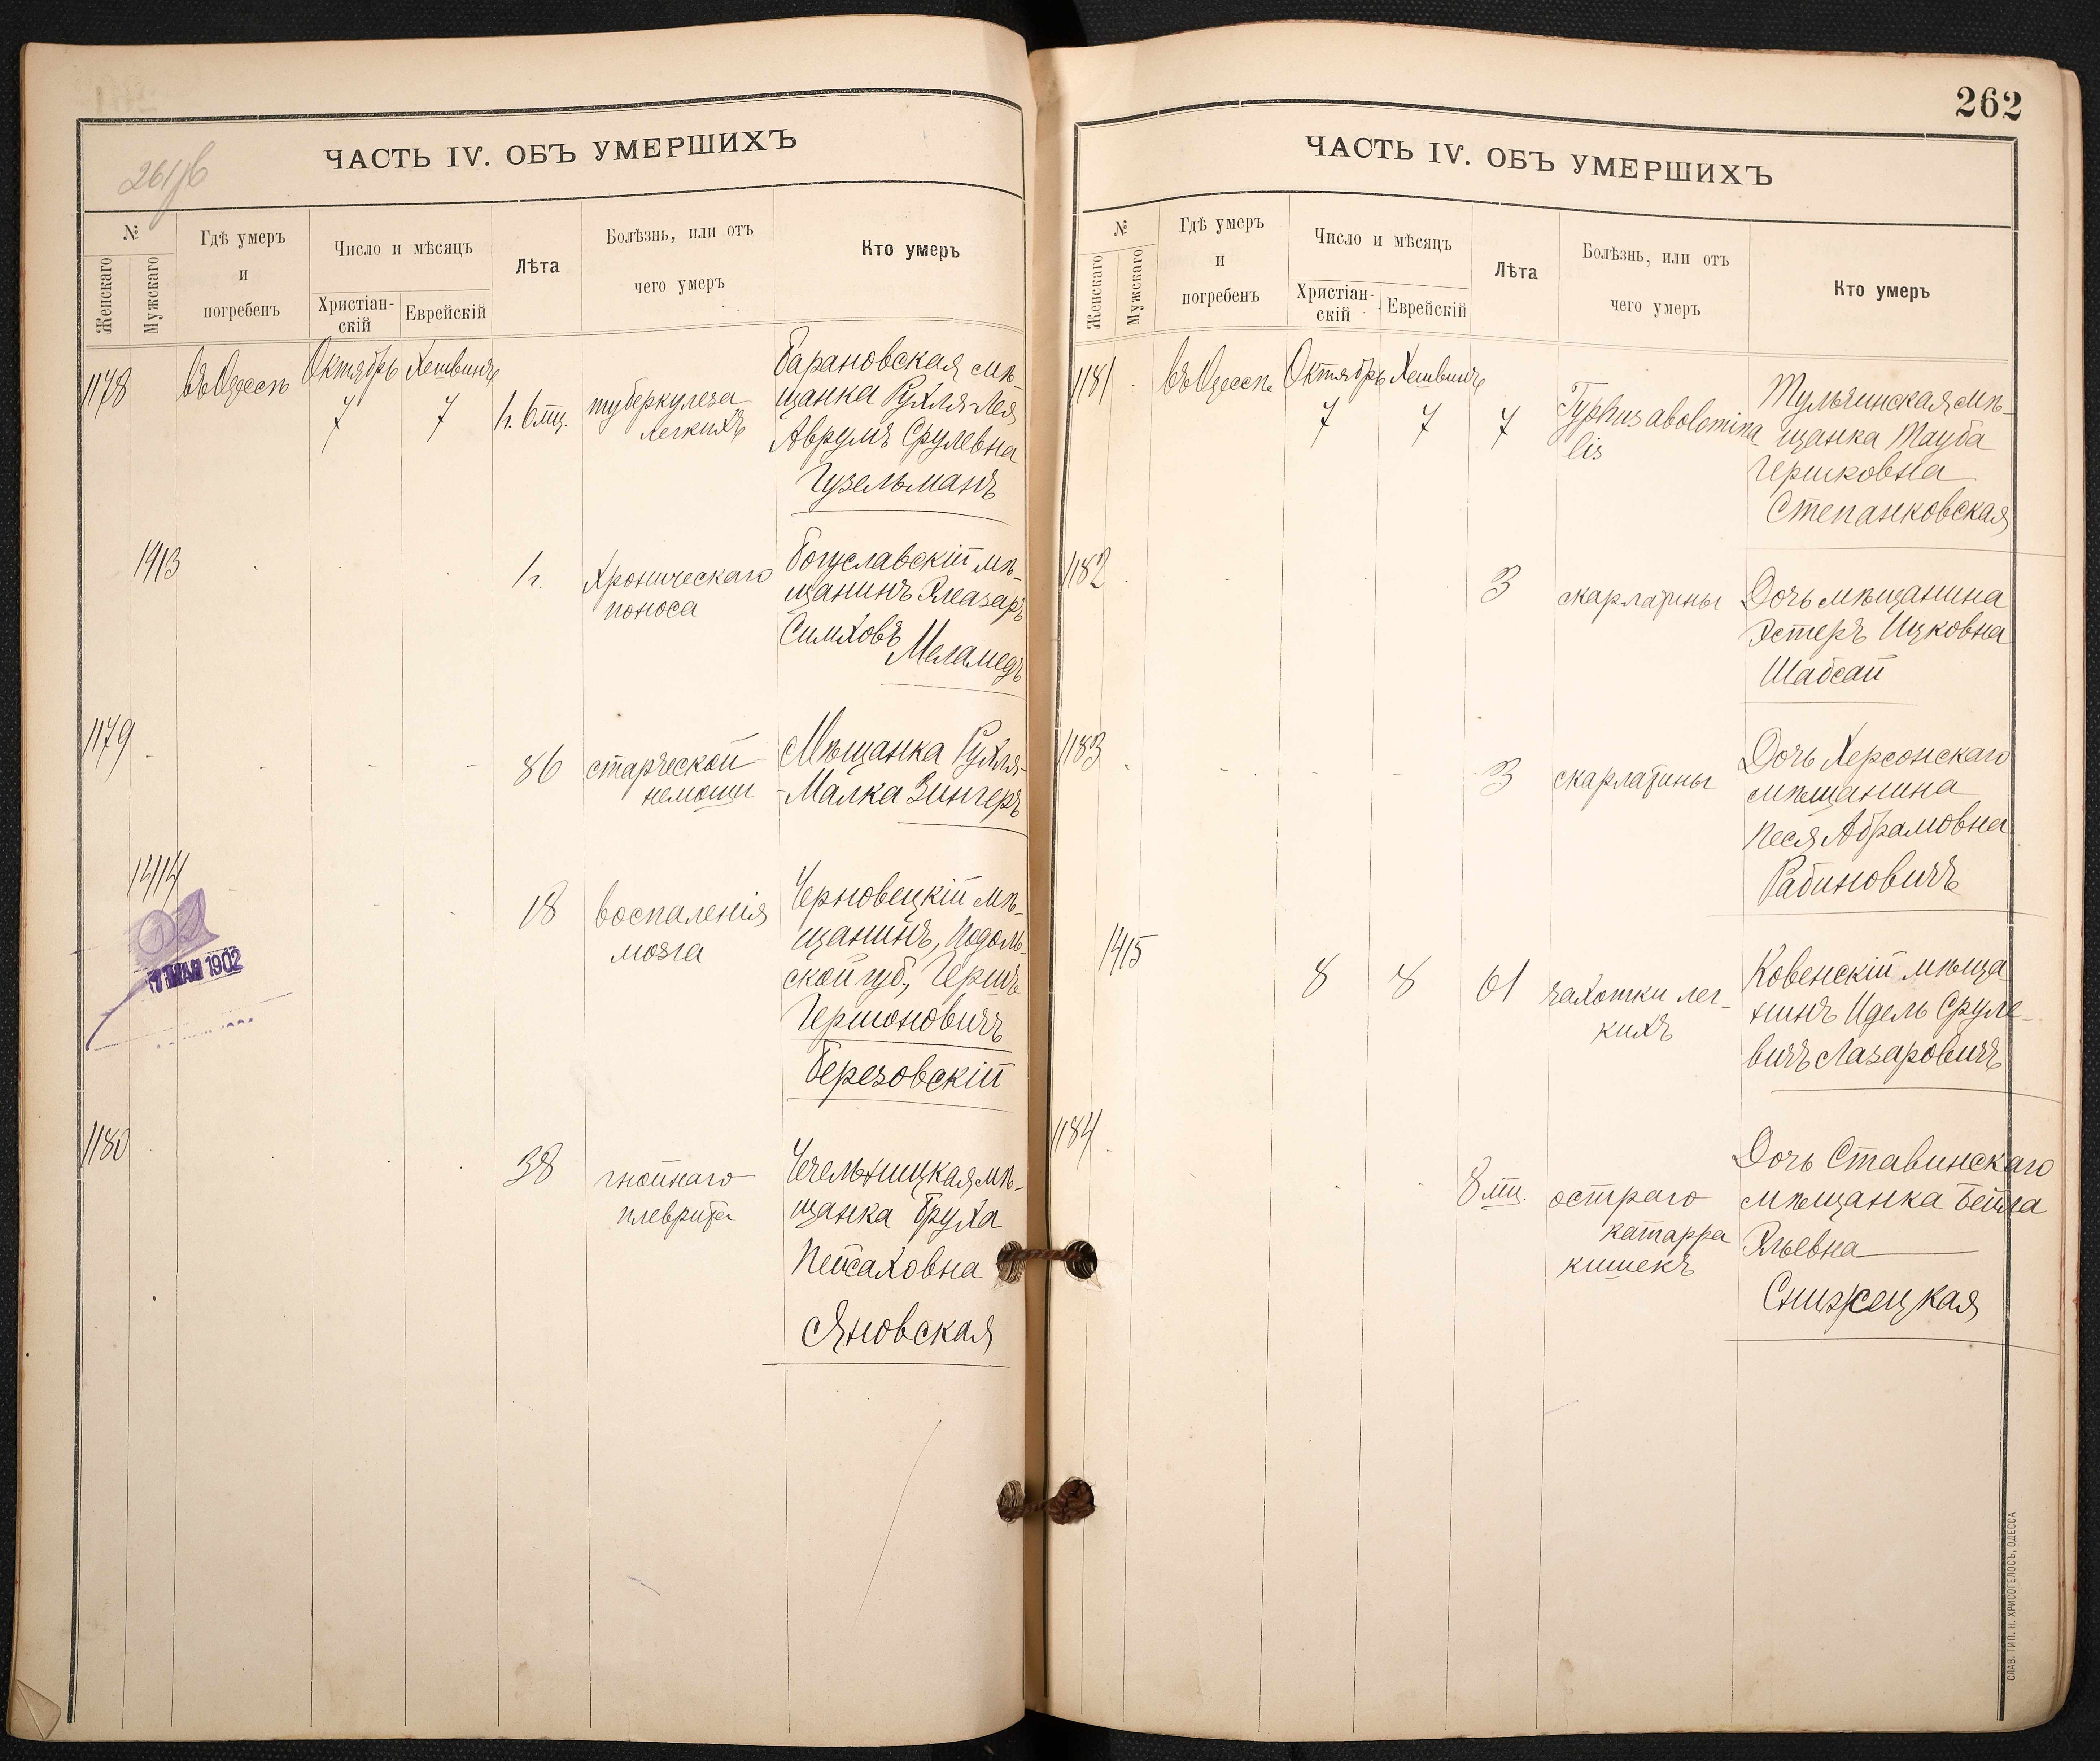 261/б
ЧАСТЬ IV. ОБЪ УМЕРШИХЪ
№
Женскаго
Мужскаго
Гдѣ умеръ
и
погребенъ
Число и мѣсяцъ
Христіан-
скій
Еврейскій
Лѣта
Болѣзнь, или отъ
чего умеръ
Кто умеръ
1178
въ Одессѣ
Октябрь
7
Хешвинъ
7
1 г. 6 мц.
туберкулеза
легкихъ
Барановская мѣ-
щанка Рухля-Лея
Аврумъ Срулевна
Гузельманъ
1413
1 г.
Хроническаго
поноса
Богуславскій мѣ-
щанинъ Элеазаръ
Симховъ
Меламедъ
1179
86
старческой
немощи
Мѣщанка Рухля-
-Малка Зингеръ
1414
МАЯ 1902
18
воспаленія
мозга
Черновецкій мѣ-
щанинъ, Подоль-
ской губ., Гершъ
Гершоновичъ
Березовскій
1180
38
гнойнаго
плеврита
Чечельницкая мѣ-
щанка Бруха
Пейсаховна
Яновская
262
ЧАСТЬ IV. ОБЪ УМЕРШИХЪ
№
Женскаго
Мужскаго
Гдѣ умеръ
и
погребенъ
Число и мѣсяцъ
Христіан-
скій
Еврейскій
Лѣта
Болѣзнь, или отъ
чего умеръ
Кто умеръ
1181
въ Одессѣ
Октябрь
7
Хешвинъ
7
7
Typhus abolomina
lis
Тульчинская мѣ-
щанка Тауба
Гершковна
Степанковская
1182
3
скарлатины
Дочь мѣщанина
Эстеръ Ицковна
Шабсай
1183
3
скарлатины
Дочь Херсонскаго
мѣщанина
Песя Абрамовна
Рабиновичъ
1415
8
8
61
чахотки лег-
кихъ
Ковенскій мѣща
нинъ Идель Сруле-
вичъ Лазаровичъ
1184
8 мц.
остраго
катарра
кишекъ
Дочь Ставинскаго
мѣщанка Бейла
Эльевна
Снижецкая
СЛАВ. ТИП. Н. ХРИСОГЕЛОСЪ, ОДЕССА